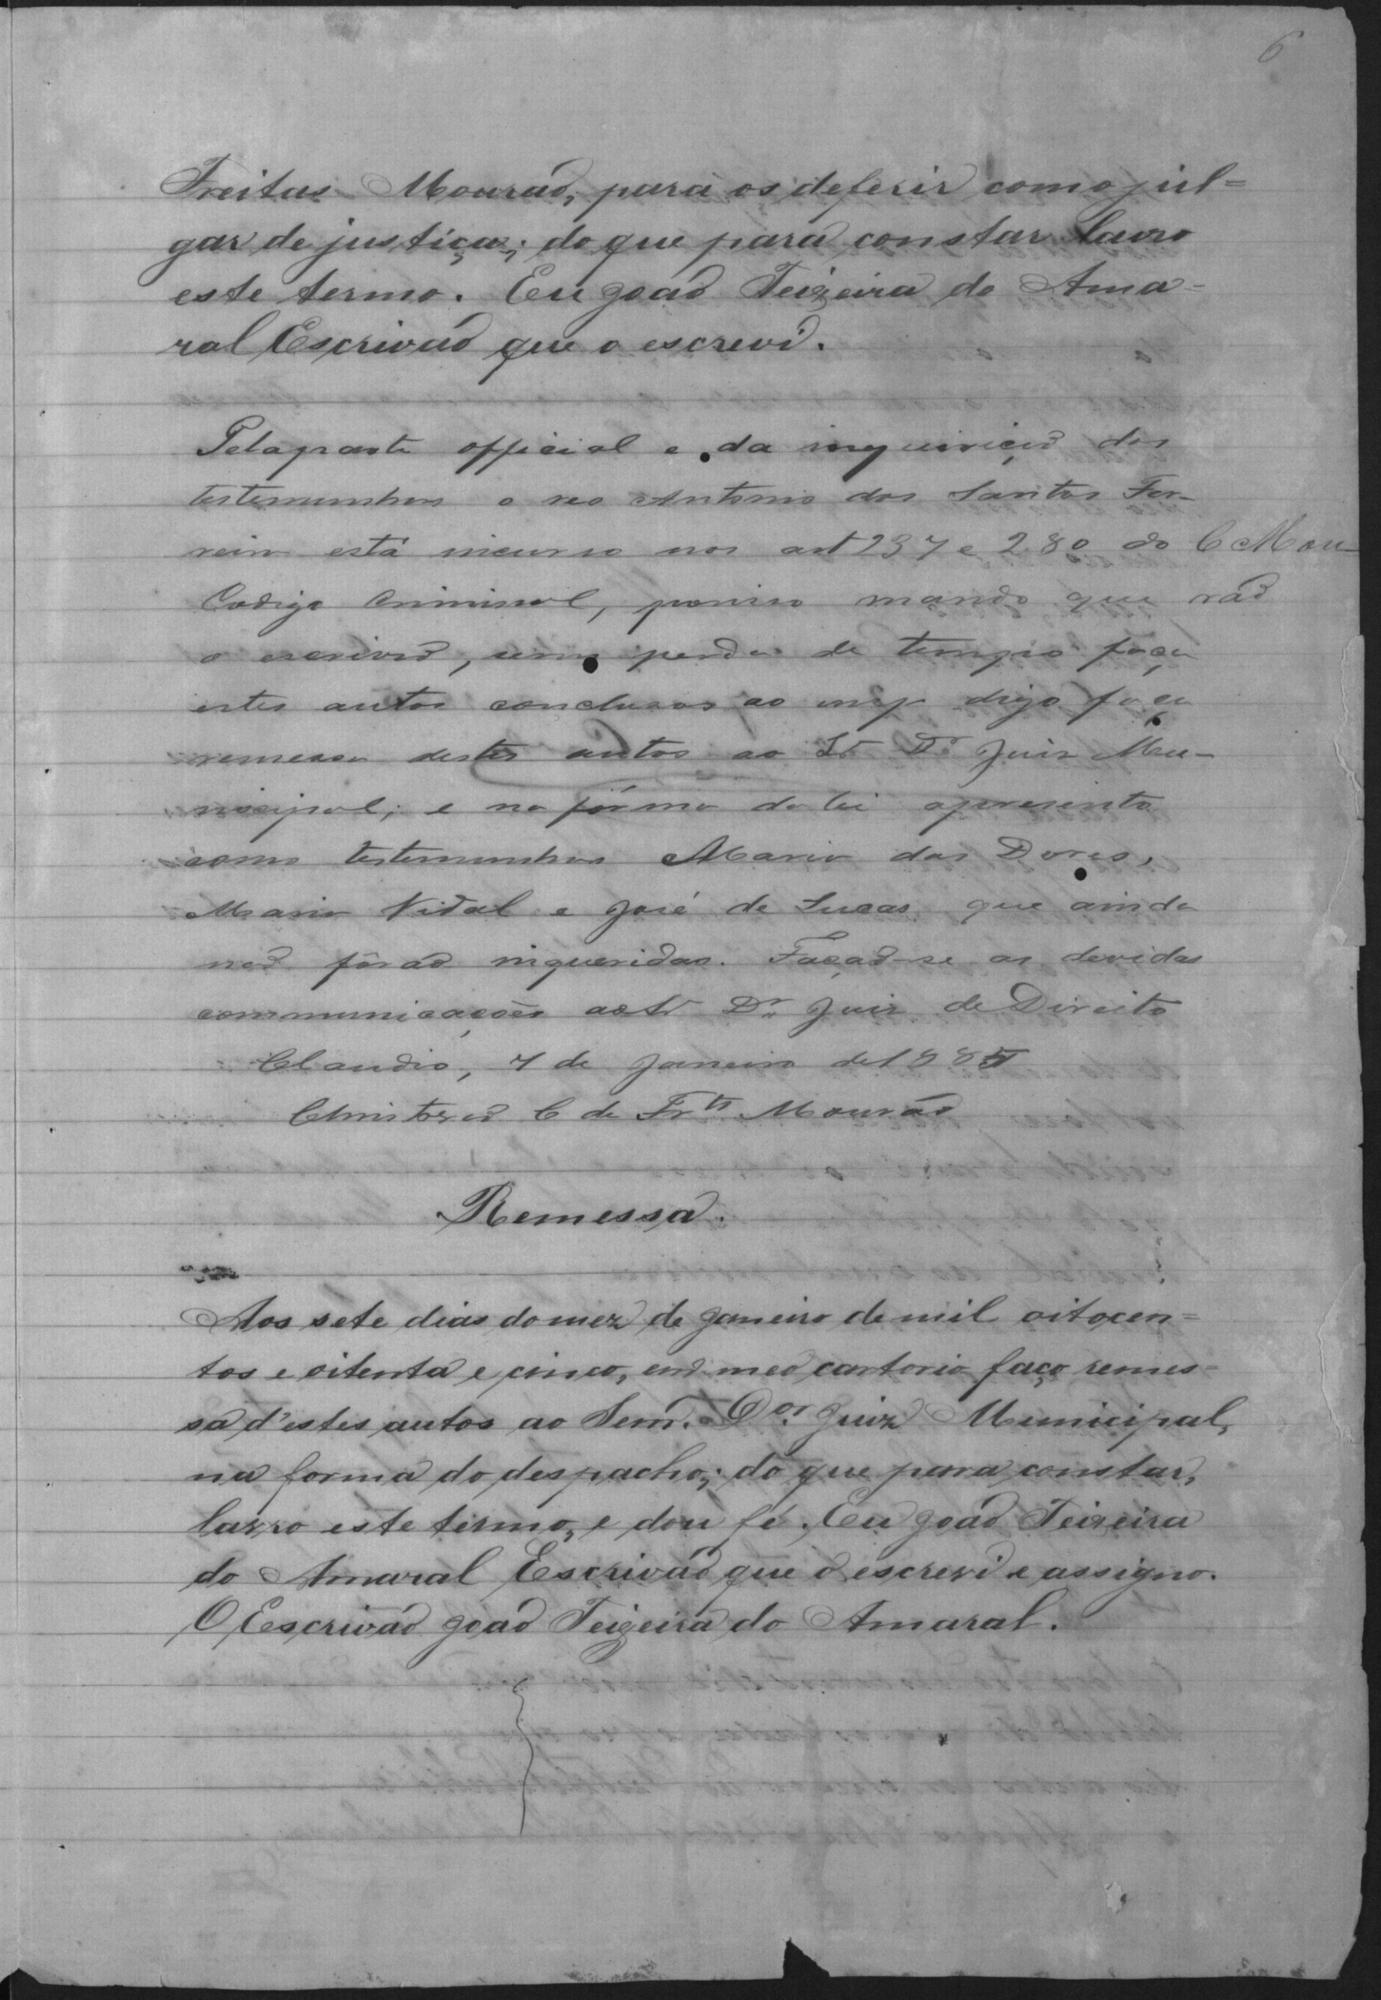 6
Freitas Mourão, para os deferir como jul=
gar de justiça; do que para constar lavro
este termo. Eu João Teixeira do Ama=
ral Escrivão que o escrevi.
Pela parte official e da inquirição das
testemunhas o reo Antonio dos Santos Fer-
reira está incurso nos art 237 e 280 do
C Mou-
rão
Codigo Criminal, porisso mando que
o escrivão, sem perda de tempo faça
estes autos conclusos ao digo faça
remessa destes autos ao Sr Dr Juiz Mu-
nicipal; e na fórma da lei apresento
como testemunhas Maria das Dores,
Maria Vidal e José de Lucas que ainda
não fôrão inqueridas. Fação-se as devidas
communicações ao Sr Dr Juiz de Direito
Claudio, 7 de Janeiro de 1885
Christovão C de Frts Mourão
Remessa.
Aos sete dias do mez de Janeiro de mil oitocen=
tos e oitenta e cinco, em meo cartorio faço remes=
sa d'estes autos ao Senr. Dor. Juiz Municipal,
na forma do despacho; do que para constar,
lavro este termo, e dou fé. Eu João Teixeira
do Amaral Escrivão que o escrevi e assigno.
O Escrivão João Teixeira do Amaral.